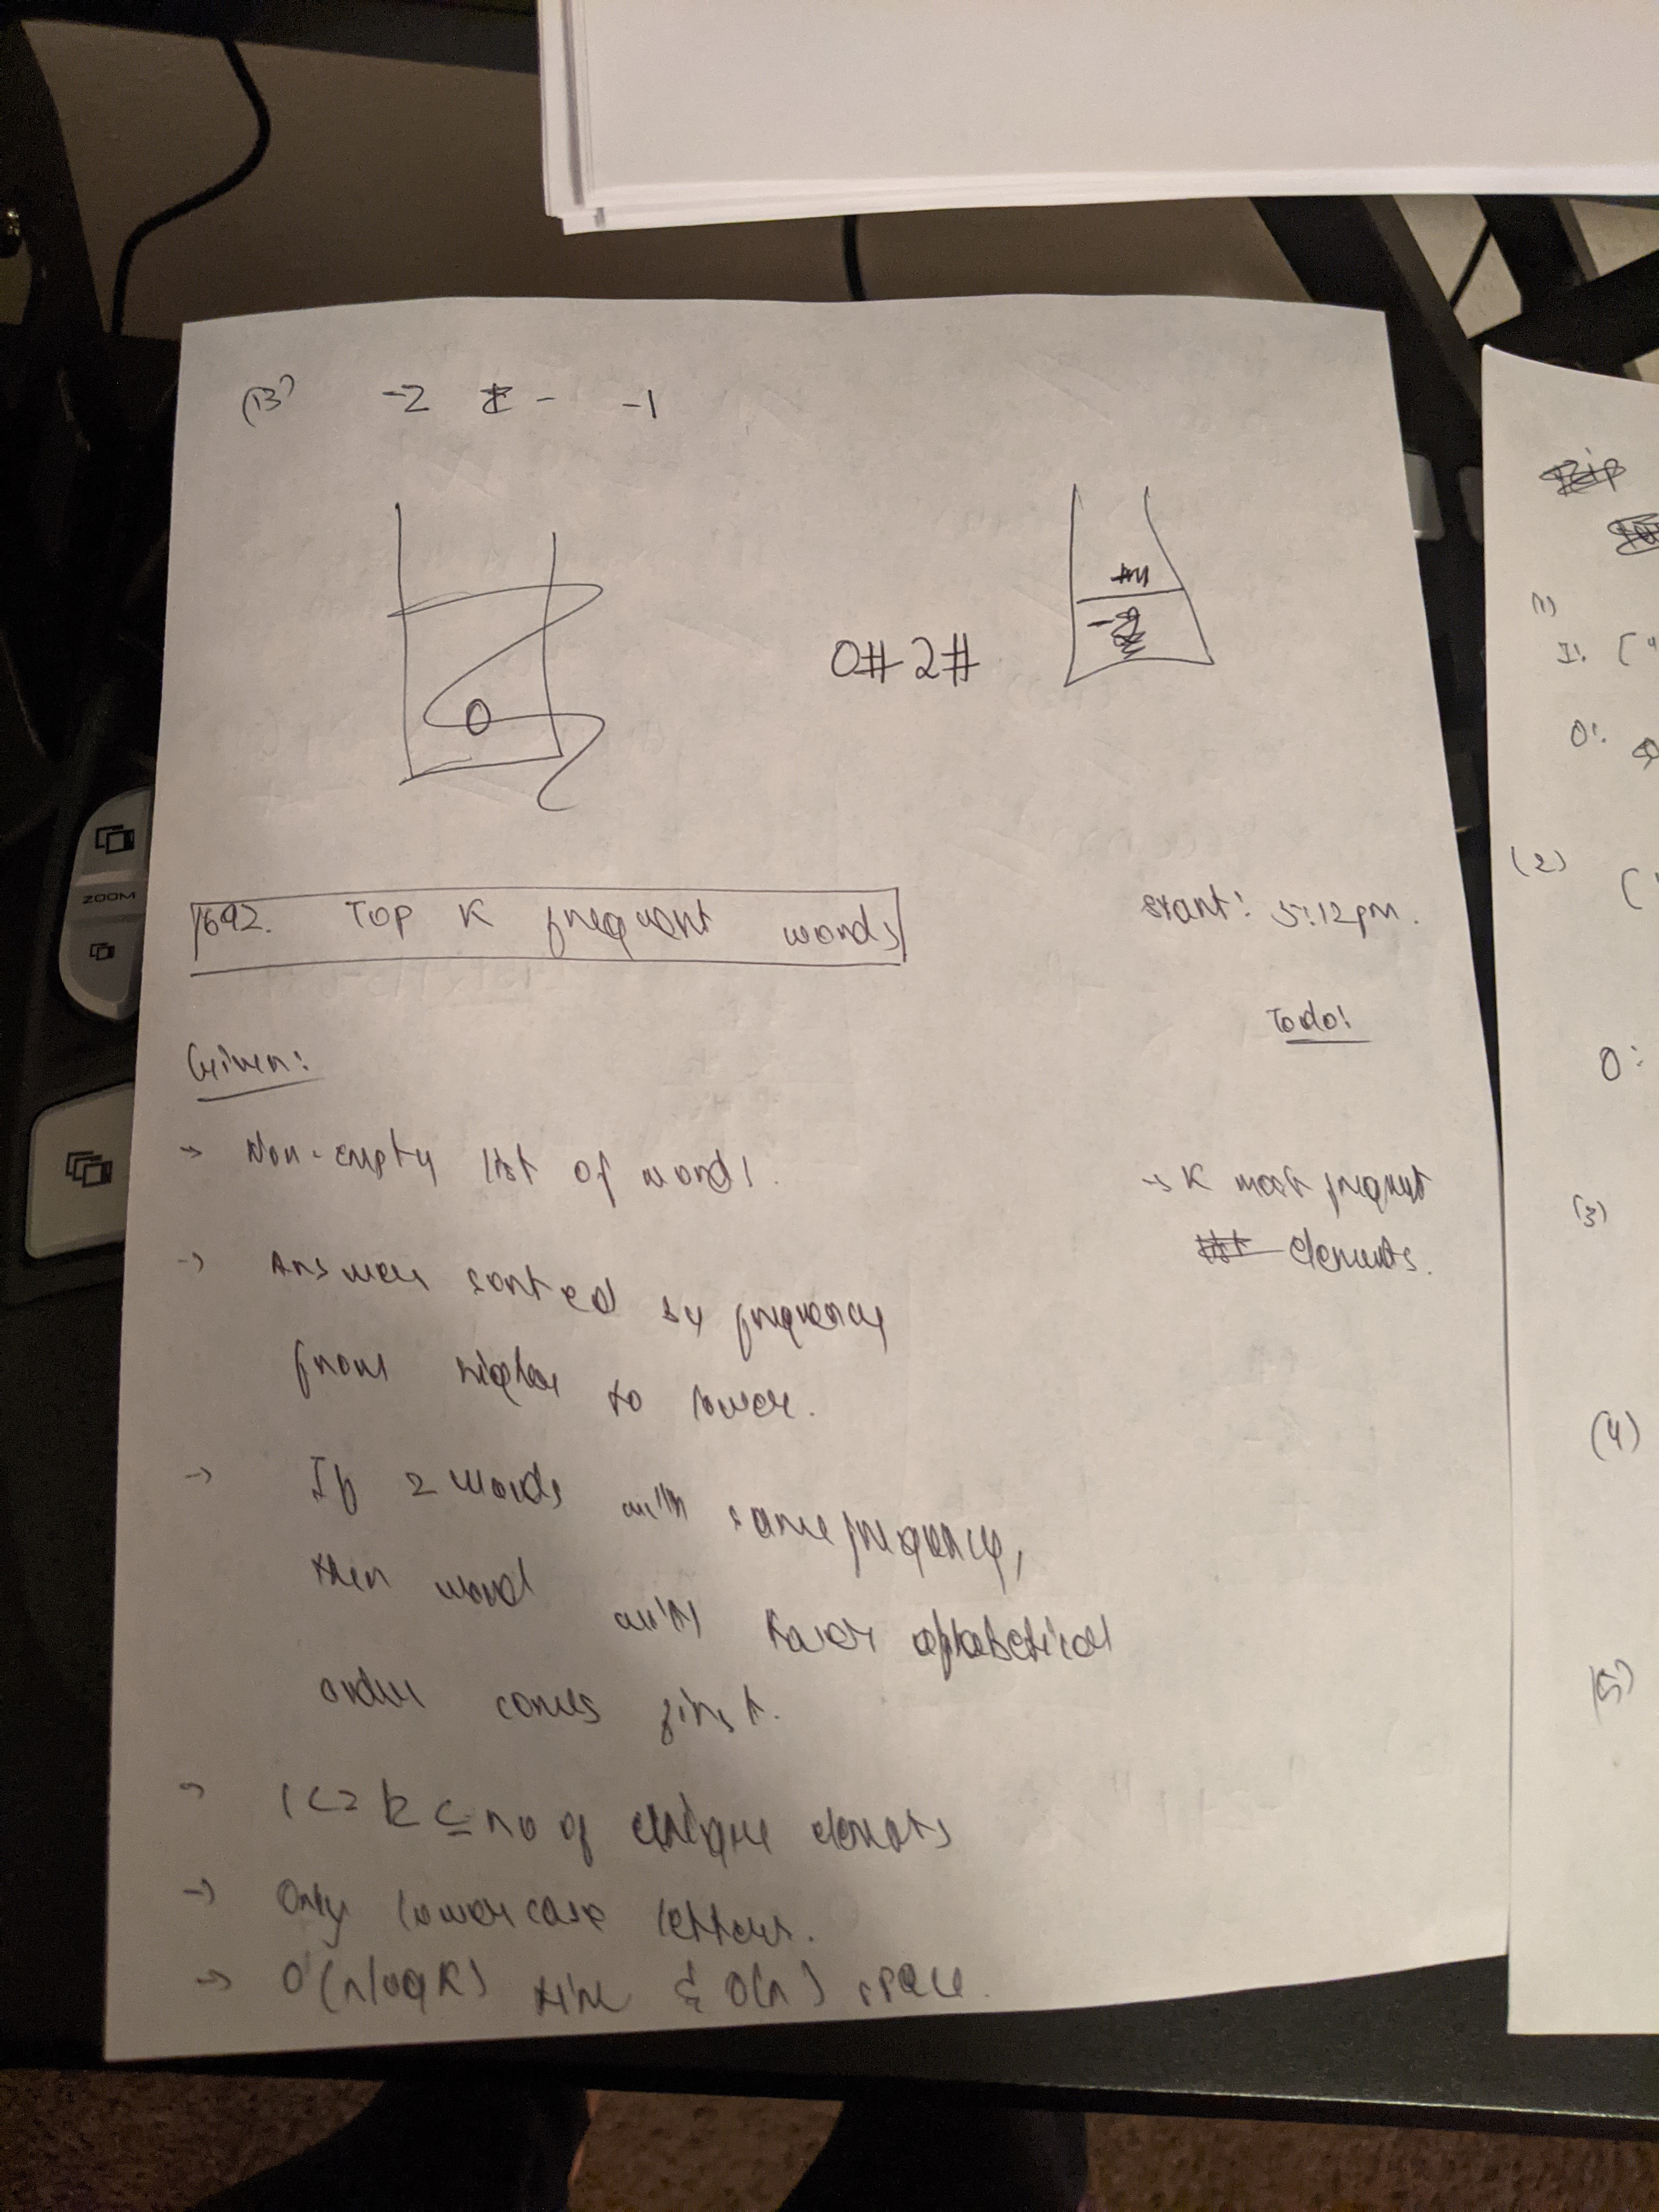 (13) -2 - -1
0
0# 2#
692. Top K frequent words
start: 5:12pm.
Todo:
Given:
→ Non-empty list of words.
→ K most frequent
elements.
→ Answer sorted by frequency
from higher to lower.
→ If 2 words with same frequency,
then word with lower alphabetical
order comes first.
→ 1<= k <= no of unique elements
→ Only lowercase letters.
→ O(nlogk) time & O(n) space.
ZOOM
(1)
I: ["
O:
(2)
O:
(3)
(4)
(5)